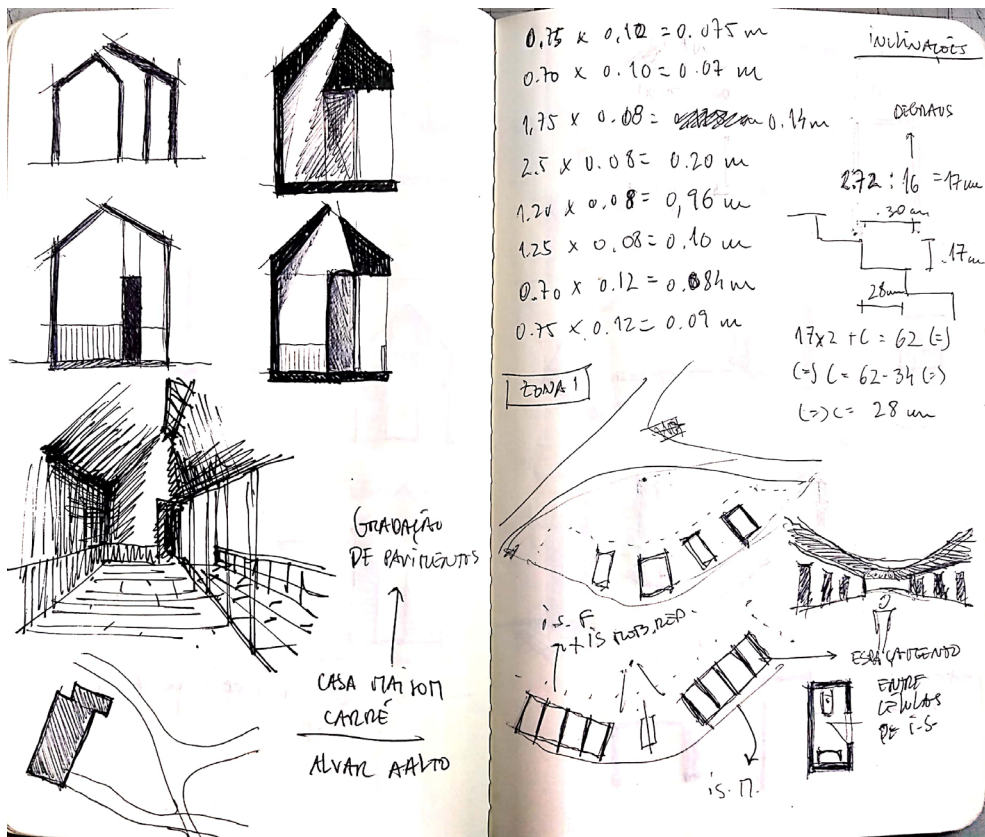 GRADAÇÃO
DE PAVIMENTOS
CASA MAISON
CARRÉ
ALVAR AALTO
0.75 x 0.10 = 0.075 m
0.70 x 0.10 = 0.07 m
1,75 x 0.08 = 0.14m
2.5 x 0.08 = 0.20 m
1.20 x 0.08 = 0,96 m
1.25 x 0.08 = 0.10 m
0.70 x 0.12 = 0.084m
0.75 x 0.12 = 0.09 m
INCLINAÇÕES
DEGRAUS
2.72 : 16 = 17cm
.30cm
.17cm
28cm
17x2 + C = 62 (=)
(=) C = 62-34 (=)
(=) C = 28 cm
ZONA 1
i.s. F
+ is MOB. RED.
is. M.
ESPAÇAMENTO
ENTRE
CÉLULAS
DE i.S